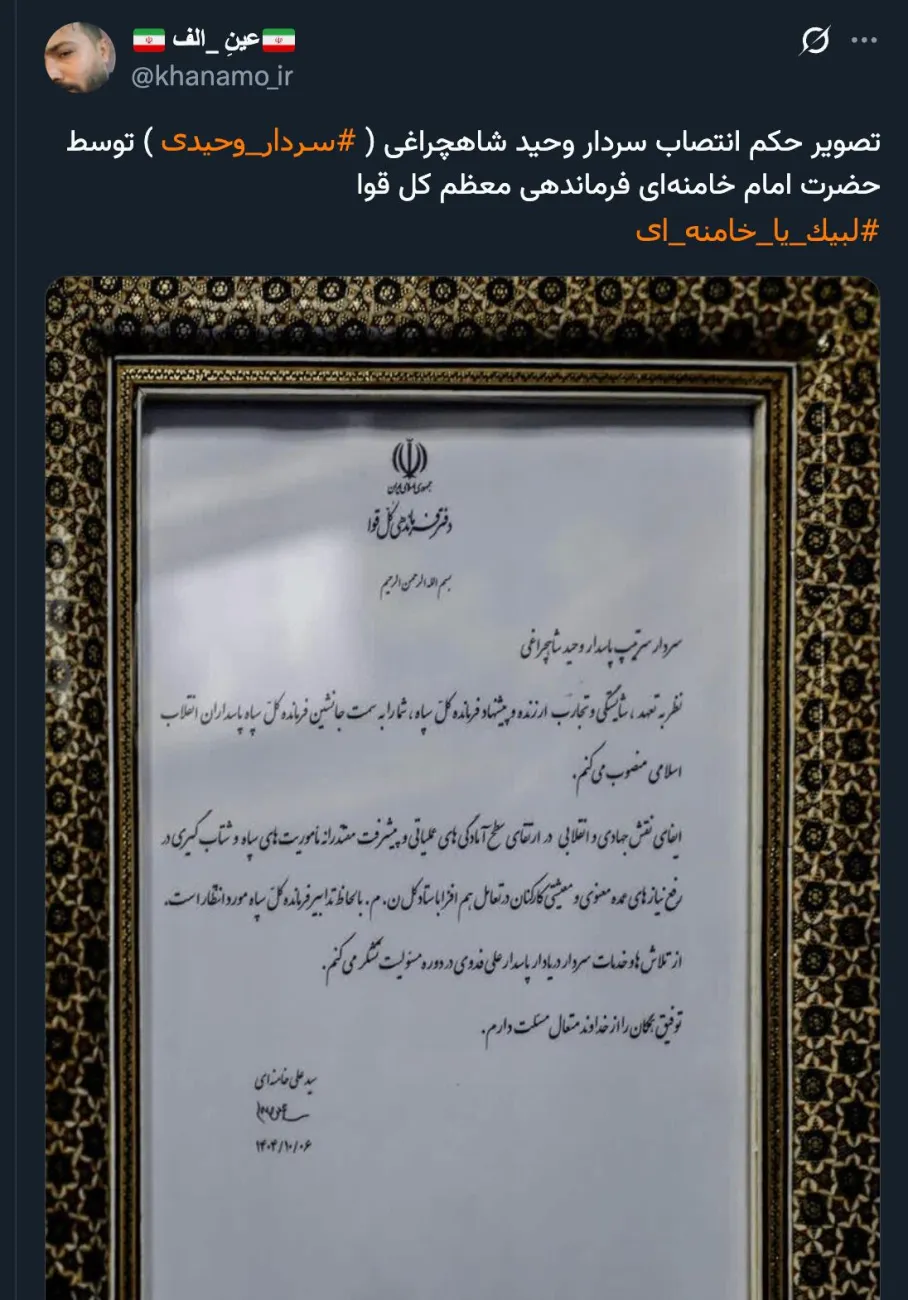 عینِ _الف
@khanamo_ir
تصویر حکم انتصاب سردار وحید شاهچراغی ( #سردار_وحیدی ) توسط
حضرت امام خامنه‌ای فرماندهی معظم کل قوا
#لبیك_یا_خامنه_ای
جمهوری اسلامی ایران
دفتر فرماندهی کل قوا
بسم الله الرحمن الرحیم
سردار سرتیپ پاسدار وحید شاهچراغی
نظر به تعهد، شایستگی و تجارب ارزنده و پیشنهاد فرمانده کلّ سپاه، شما را به سمت جانشین فرمانده کلّ سپاه پاسداران انقلاب
اسلامی منصوب می‌کنم.
ایفای نقش جهادی و انقلابی در ارتقای سطح آمادگی‌های عملیاتی و پیشرفت مقتدرانه مأموریت‌های سپاه و شتاب گیری در
رفع نیازهای عمده معنوی و معیشتی کارکنان در تعامل هم افزا با ستاد کل ن.م. با لحاظ تدابیر فرمانده کلّ سپاه مورد انتظار است.
از تلاش ها و خدمات سردار دریادار پاسدار علی فدوی در دوره مسئولیت تشکر می‌کنم.
توفیق همگان را از خداوند متعال مسئلت دارم.
سید علی خامنه‌ای
۱۴۰۴/۱۰/۰۶